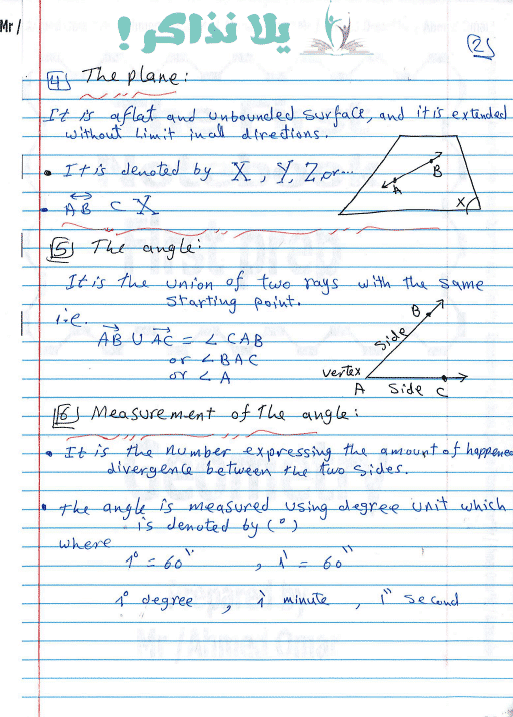 Mr /
يلا نذاكر !
2
4 The plane:
It is aflat and unbounded surface, and it is extended
without limit in all directions.
• It is denoted by X, Y, Z, or...
AB ⊂ X
A
B
X
5 The angle:
It is the union of two rays with the same
starting point.
i.e.
AB ∪ AC = ∠ CAB
or ∠ BAC
or ∠ A
B
side
vertex
A side C
6 Measurement of The angle:
• It is the number expressing the amount of happened
divergence between the two sides.
• the angle is measured using degree unit which
is denoted by (°)
where
1° = 60' , 1' = 60"
1° degree , 1' minute , 1" second
Mr / Ahmed Omar